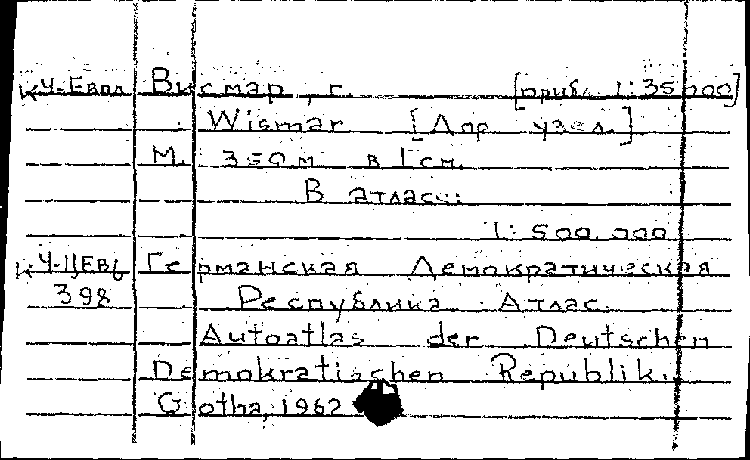 К У-Евро Висмар, г. [прибл. 1:35000]
Wismar [Дор. узел.]
М. 350 м в 1 см.
В атласе:
1:500 000
К У-ЦЕв6 Германская Демократическая
398 Республика. Атлас.
Autoatlas der Deutschen
Demokratischen Republik.
Gotha, 1962